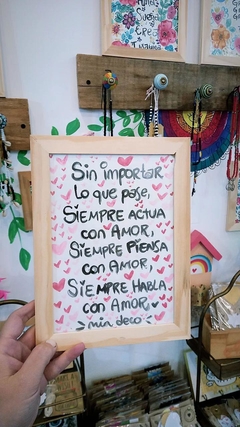 Sueña
crea
Sin importar
lo que pase,
SIEMPRE ACTUA
con AMOR,
SIEMPRE PIENSA
con AMOR,
SIEMPRE HABLA
con AMOR.
min deco